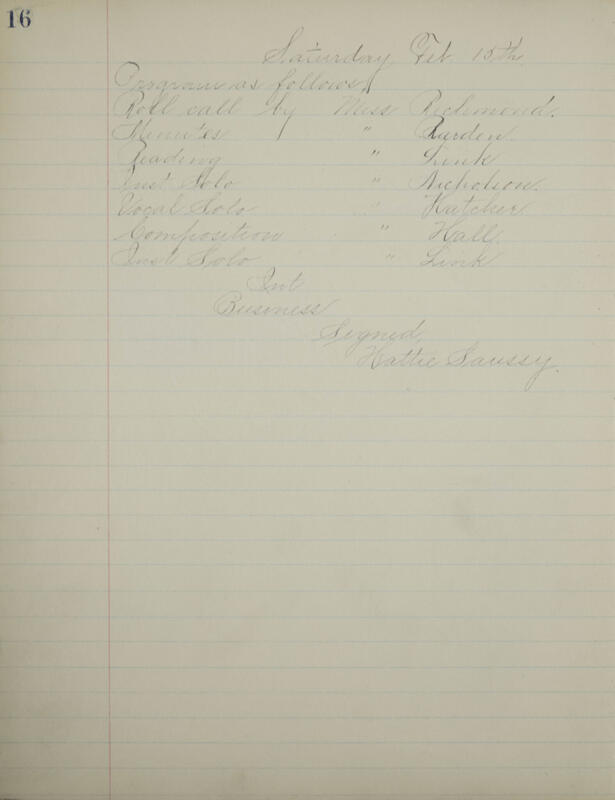 16
Saturday, Feb. 15th.
Program as follows,
Roll call by Miss Richmond.
Minutes " Burden.
Reading " Link
Inst Solo " Nicholson.
Vocal Solo " Hatcher.
Composition " Hall.
Inst Solo " Link
Int
Business
Signed,
Hattie Saussy.